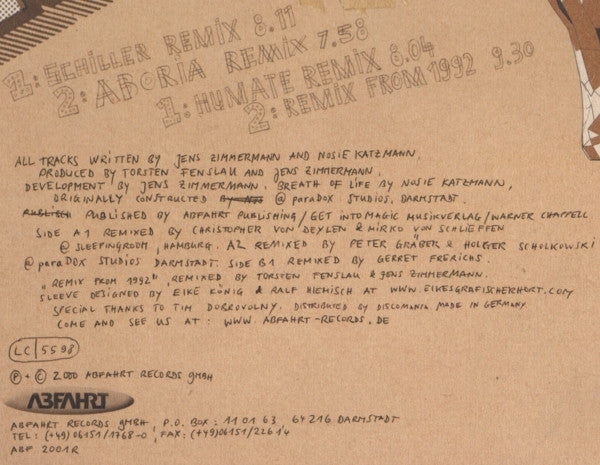 1: SCHILLER REMIX 8.11
2: ABORIA REMIX 7.58
1: HUMATE REMIX 8.04
2: REMIX FROM 1992 9.30
ALL TRACKS WRITTEN BY JENS ZIMMERMANN AND NOSIE KATZMANN,
PRODUCED BY TORSTEN FENSLAU AND JENS ZIMMERMANN,
DEVELOPMENT BY JENS ZIMMERMANN, BREATH OF LIFE BY NOSIE KATZMANN,
ORIGINALLY CONSTRUCTED @ paraDOX STUDIOS, DARMSTADT.
PUBLISCH PUBLISHED BY ABFAHRT PUBLISHING / GET INTO MAGIC MUSIKVERLAG / WARNER CHAPPELL
SIDE A1 REMIXED BY CHRISTOPHER VON DEYLEN & MIRKO VON SCHLIEFFEN
@ SLEEPINGROOM, HAMBURG. A2 REMIXED BY PETER GRÄBER & HOLGER SCHOLKOWSKI
@ paraDOX STUDIOS DARMSTADT. SIDE B1 REMIXED BY GERRET FRERICHS.
"REMIX FROM 1992" REMIXED BY TORSTEN FENSLAU & JENS ZIMMERMANN.
SLEEVE DESIGNED BY EIKE KÖNIG & RALF HIEMISCH AT WWW.EIKESGRAFISCHERHORT.COM
SPECIAL THANKS TO TIM DOBROVOLNY. DISTRIBUTED BY DISCOMANIA MADE IN GERMANY
COME AND SEE US AT: WWW.ABFAHRT-RECORDS.DE
LC 5598
℗ + © 2000 ABFAHRT RECORDS GMBH
ABFAHRT
ABFAHRT RECORDS GMBH, P.O. BOX: 11 01 63 64216 DARMSTADT
TEL: (+49) 06151/1768-0, FAX: (+49) 06151/22614
ABF 2001R